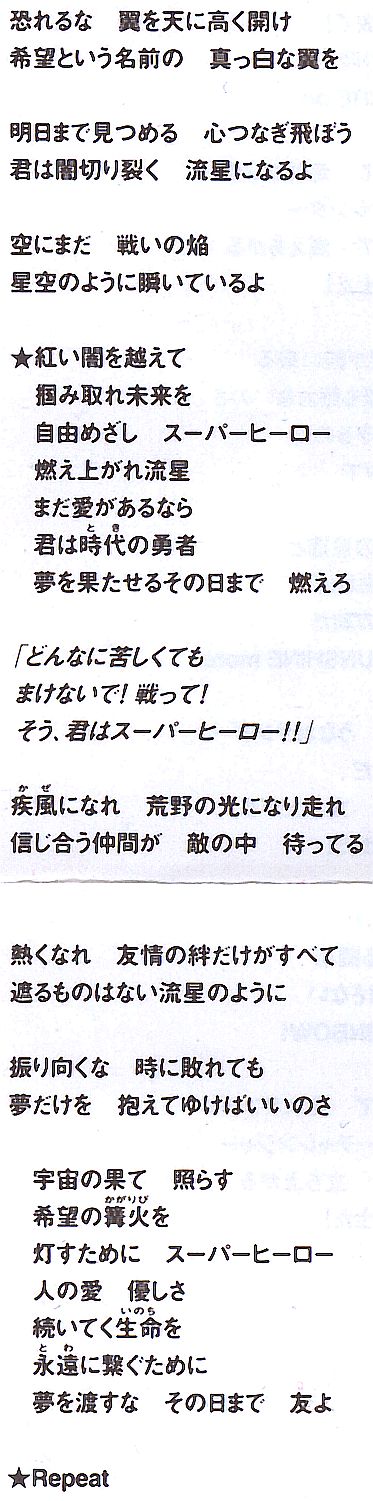 恐れるな　翼を天に高く開け
希望という名前の　真っ白な翼を
明日まで見つめる　心つなぎ飛ぼう
君は闇切り裂く　流星になるよ
空にまだ　戦いの焔
星空のように瞬いているよ
★紅い闇を越えて
掴み取れ未来を
自由めざし　スーパーヒーロー
燃え上がれ流星
まだ愛があるなら
とき
君は時代の勇者
夢を果たせるその日まで　燃えろ
「どんなに苦しくても
まけないで！戦って！
そう、君はスーパーヒーロー!!」
かぜ
疾風になれ　荒野の光になり走れ
信じ合う仲間が　敵の中　待ってる
熱くなれ　友情の絆だけがすべて
遮るものはない流星のように
振り向くな　時に敗れても
夢だけを　抱えてゆけばいいのさ
宇宙の果て　照らす
かがりび
希望の篝火を
灯すために　スーパーヒーロー
人の愛　優しさ
いのち
続いてく生命を
とわ
永遠に繋ぐために
夢を渡すな　その日まで　友よ
★Repeat